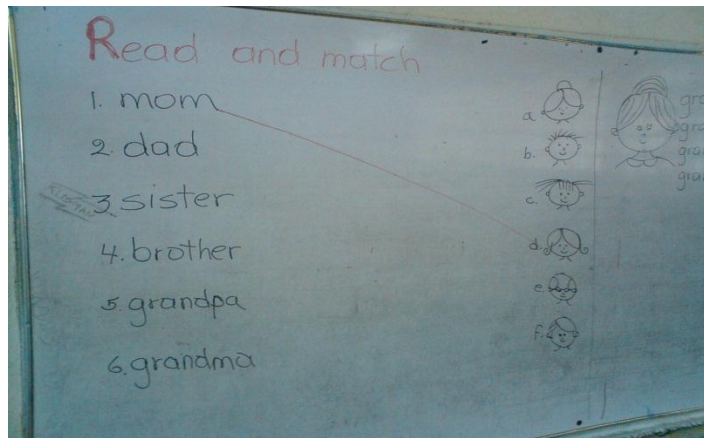 Read and match
1. mom
2. dad
3. sister
4. brother
5. grandpa
6. grandma
a.
b.
c.
d.
e.
f.
gra
gra
gra
gra